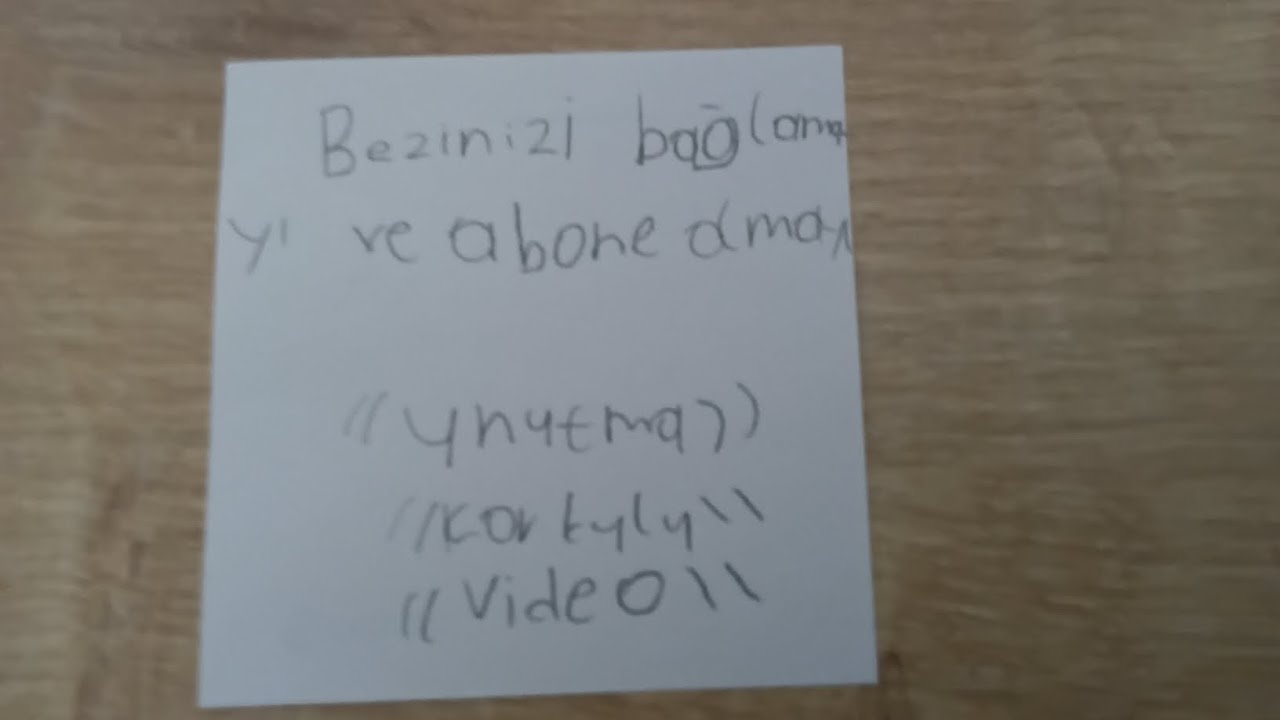 Bezinizi bağlama
yı ve abone olmay
"ynytma"
"kortyly"
"Video"